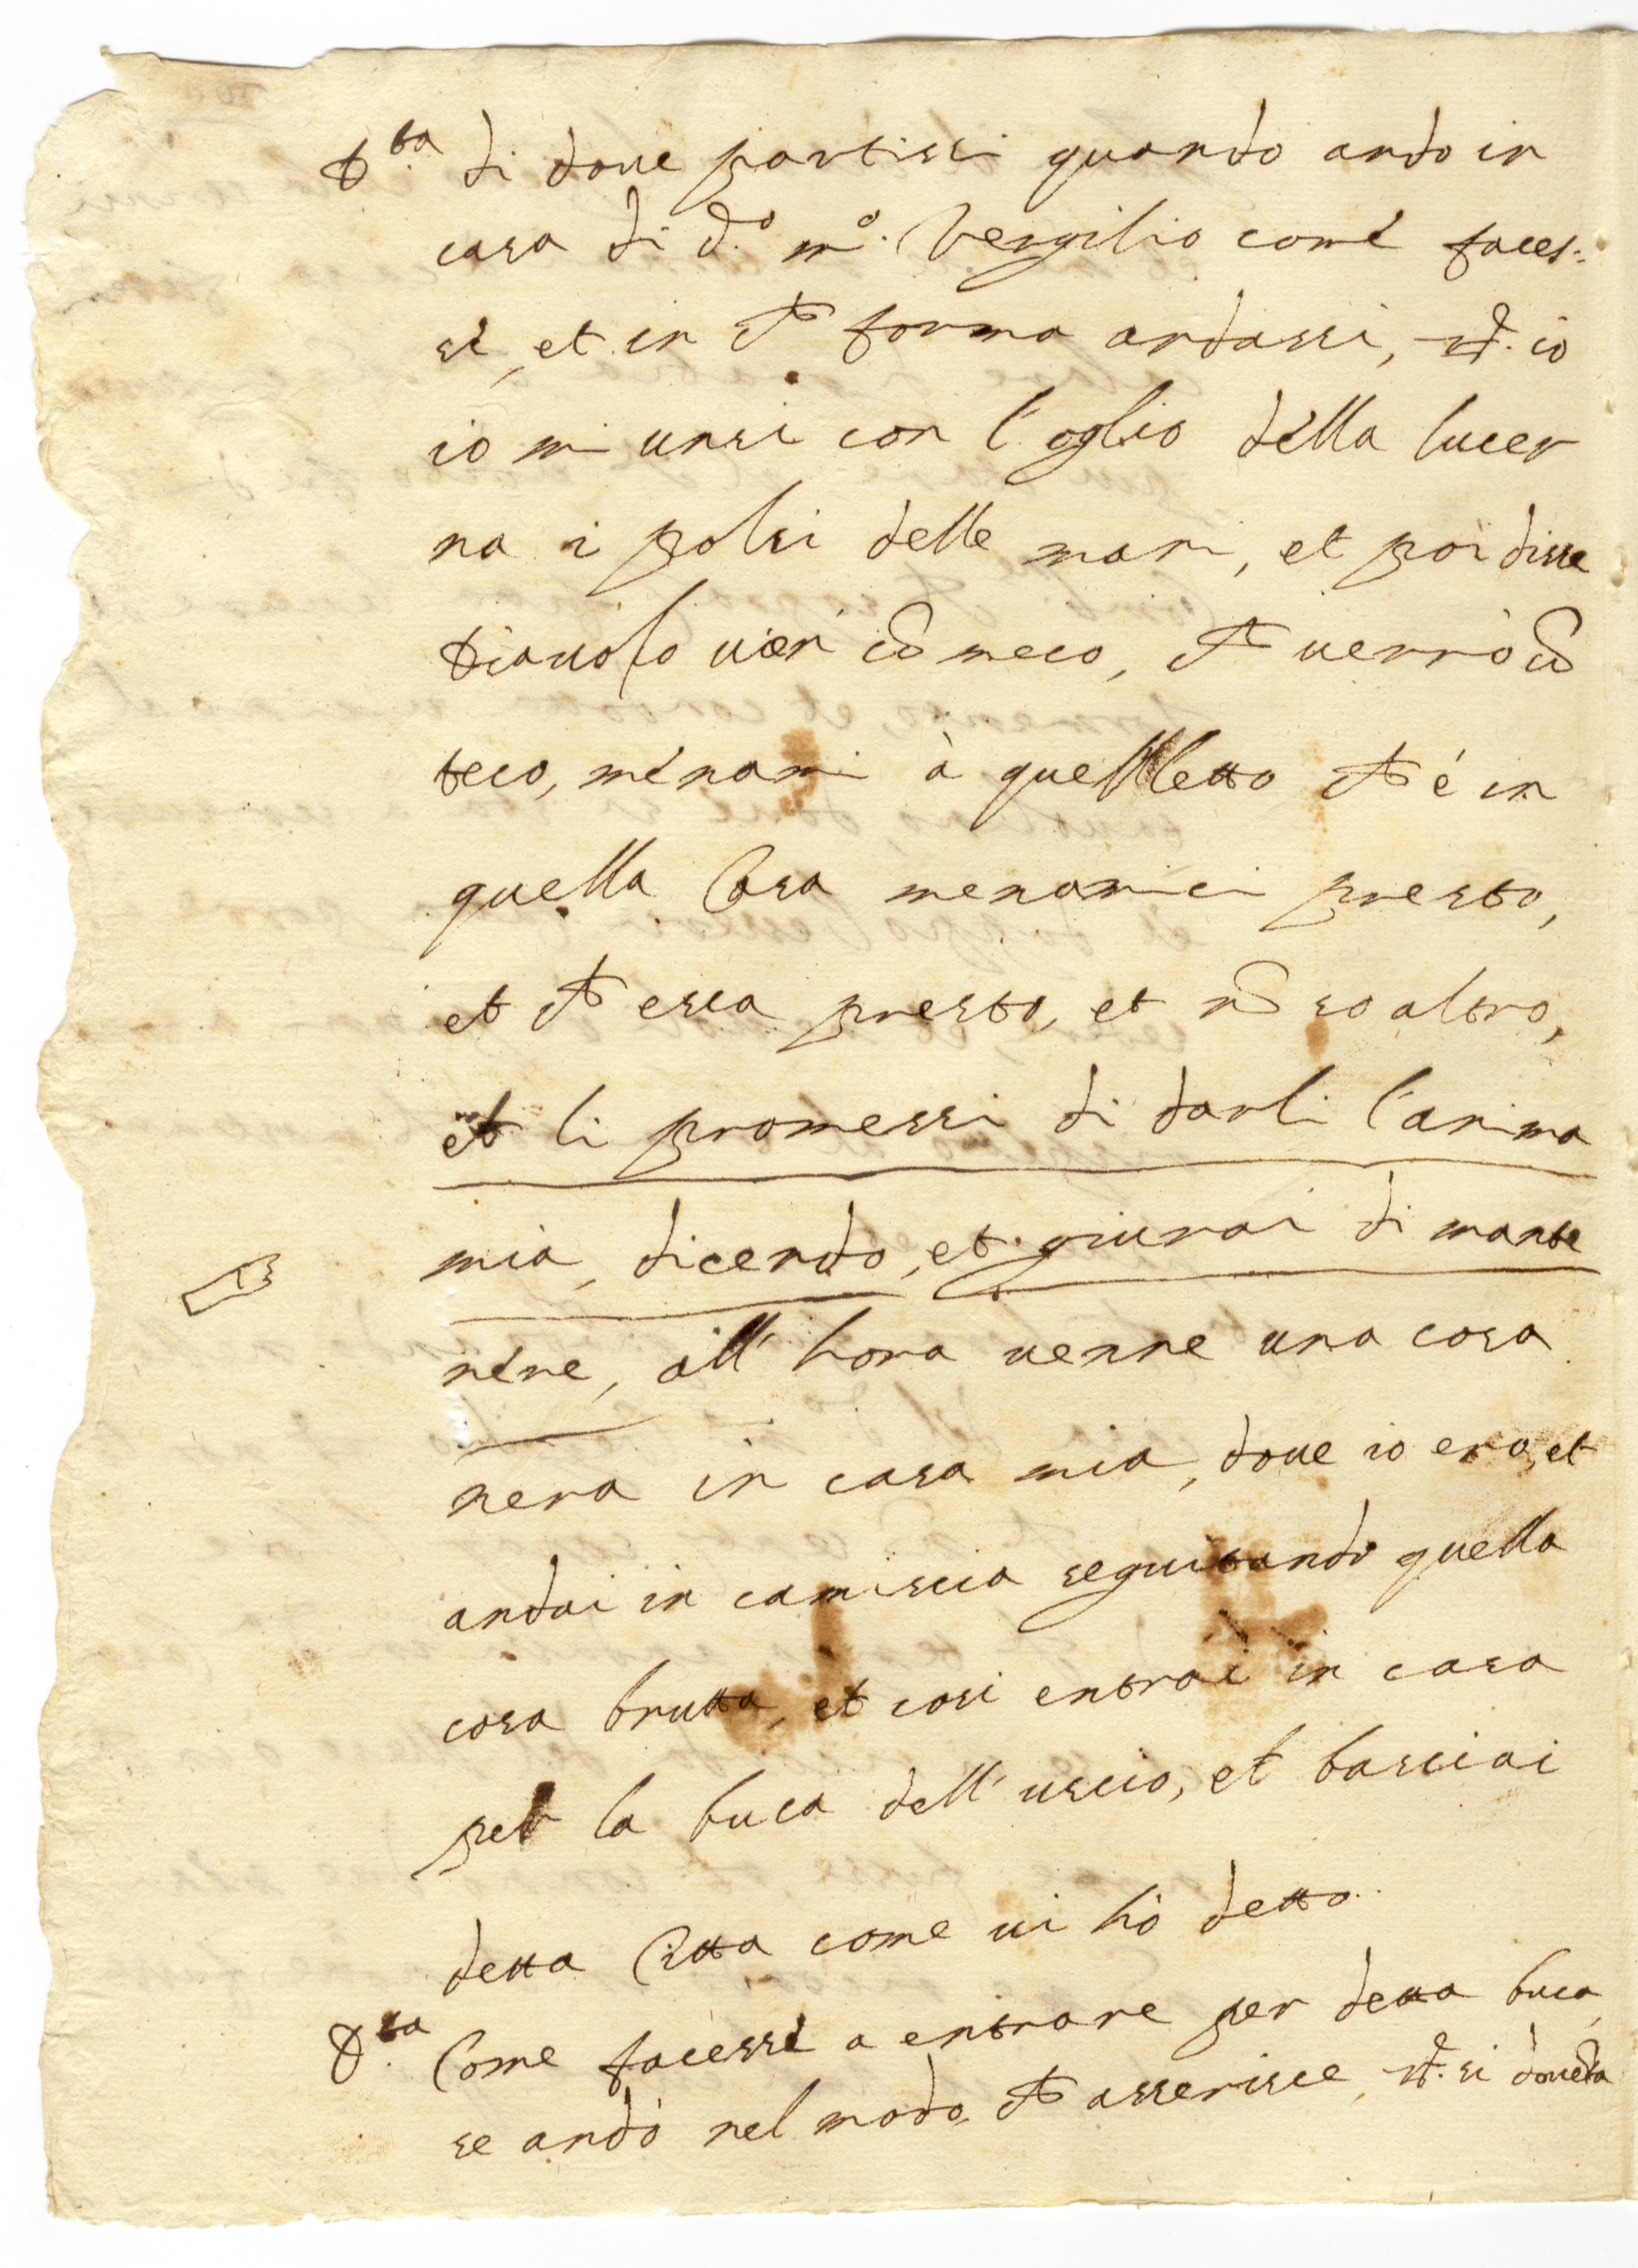 D.ta di doue partissi quando andò in
casa di d.o m.o Vergilio comé faces:
sé, et in ch forma andassi, Rd. io
io mi unsi con l'oglio della lucer
na i polsi delle mani, et poi disse
Diauolo uien cõ meco, ch uerrò cõ
teco, ménami à quel letto ch é in
quella Casa menamici presto,
et ch esca presto, et nõ so altro,
et li promessi di darli l'anima
mia, dicendo, et giurai di mante
nére, all' hora uenne una cosa
nera in casa mia, doue io ero, et
andai in camiscia seguitando quella
cosa brutta, et cosi entrai in casa
per la buca dell' uscio, et basciai
detta Citta come ui hò detto.
D.ta Come facessé a entrare per detta buca,
se andò nel modo ch asserisce, Rd. si doueta